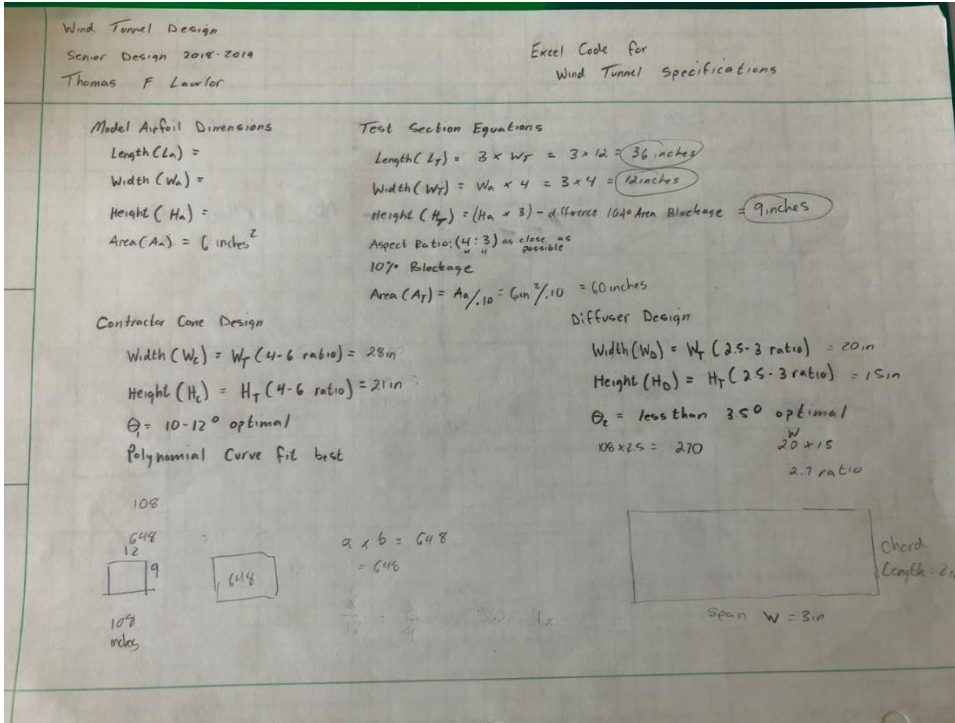 Wind Tunnel Design
Senior Design 2018-2019
Thomas F Lawlor
Excel Code for
Wind Tunnel Specifications
Model Airfoil Dimensions
Length (La) =
Width (Wa) =
Height (Ha) =
Area (Aa) = 6 inches²
Test Section Equations
Length (LT) = 3 x WT = 3 x 12 = 36 inches
Width (WT) = Wa x 4 = 3 x 4 = 12inches
Height (HT) = (Ha x 3) - difference Area Blockage = 9inches
Aspect Ratio: (4 : 3) as close as possible
10% Blockage
Area (AT) = Aa/.10 = 6in²/.10 = 60 inches
Contractor Cone Design
Width (Wc) = WT (4-6 ratio) = 28in
Height (Hc) = HT (4-6 ratio) = 21in
θ1 = 10-12° optimal
Polynomial Curve fit best
Diffuser Design
Width (WD) = WT (2.5-3 ratio) = 20in
Height (HD) = HT (2.5-3 ratio) = 15in
θ2 = less than 3.5° optimal
108 x 2.5 = 270
W
20 x 15
2.7 ratio
108
648
12
9
648
108
inches
a x b = 648
= 648
Chord
Length = 2in
Span W = 3in